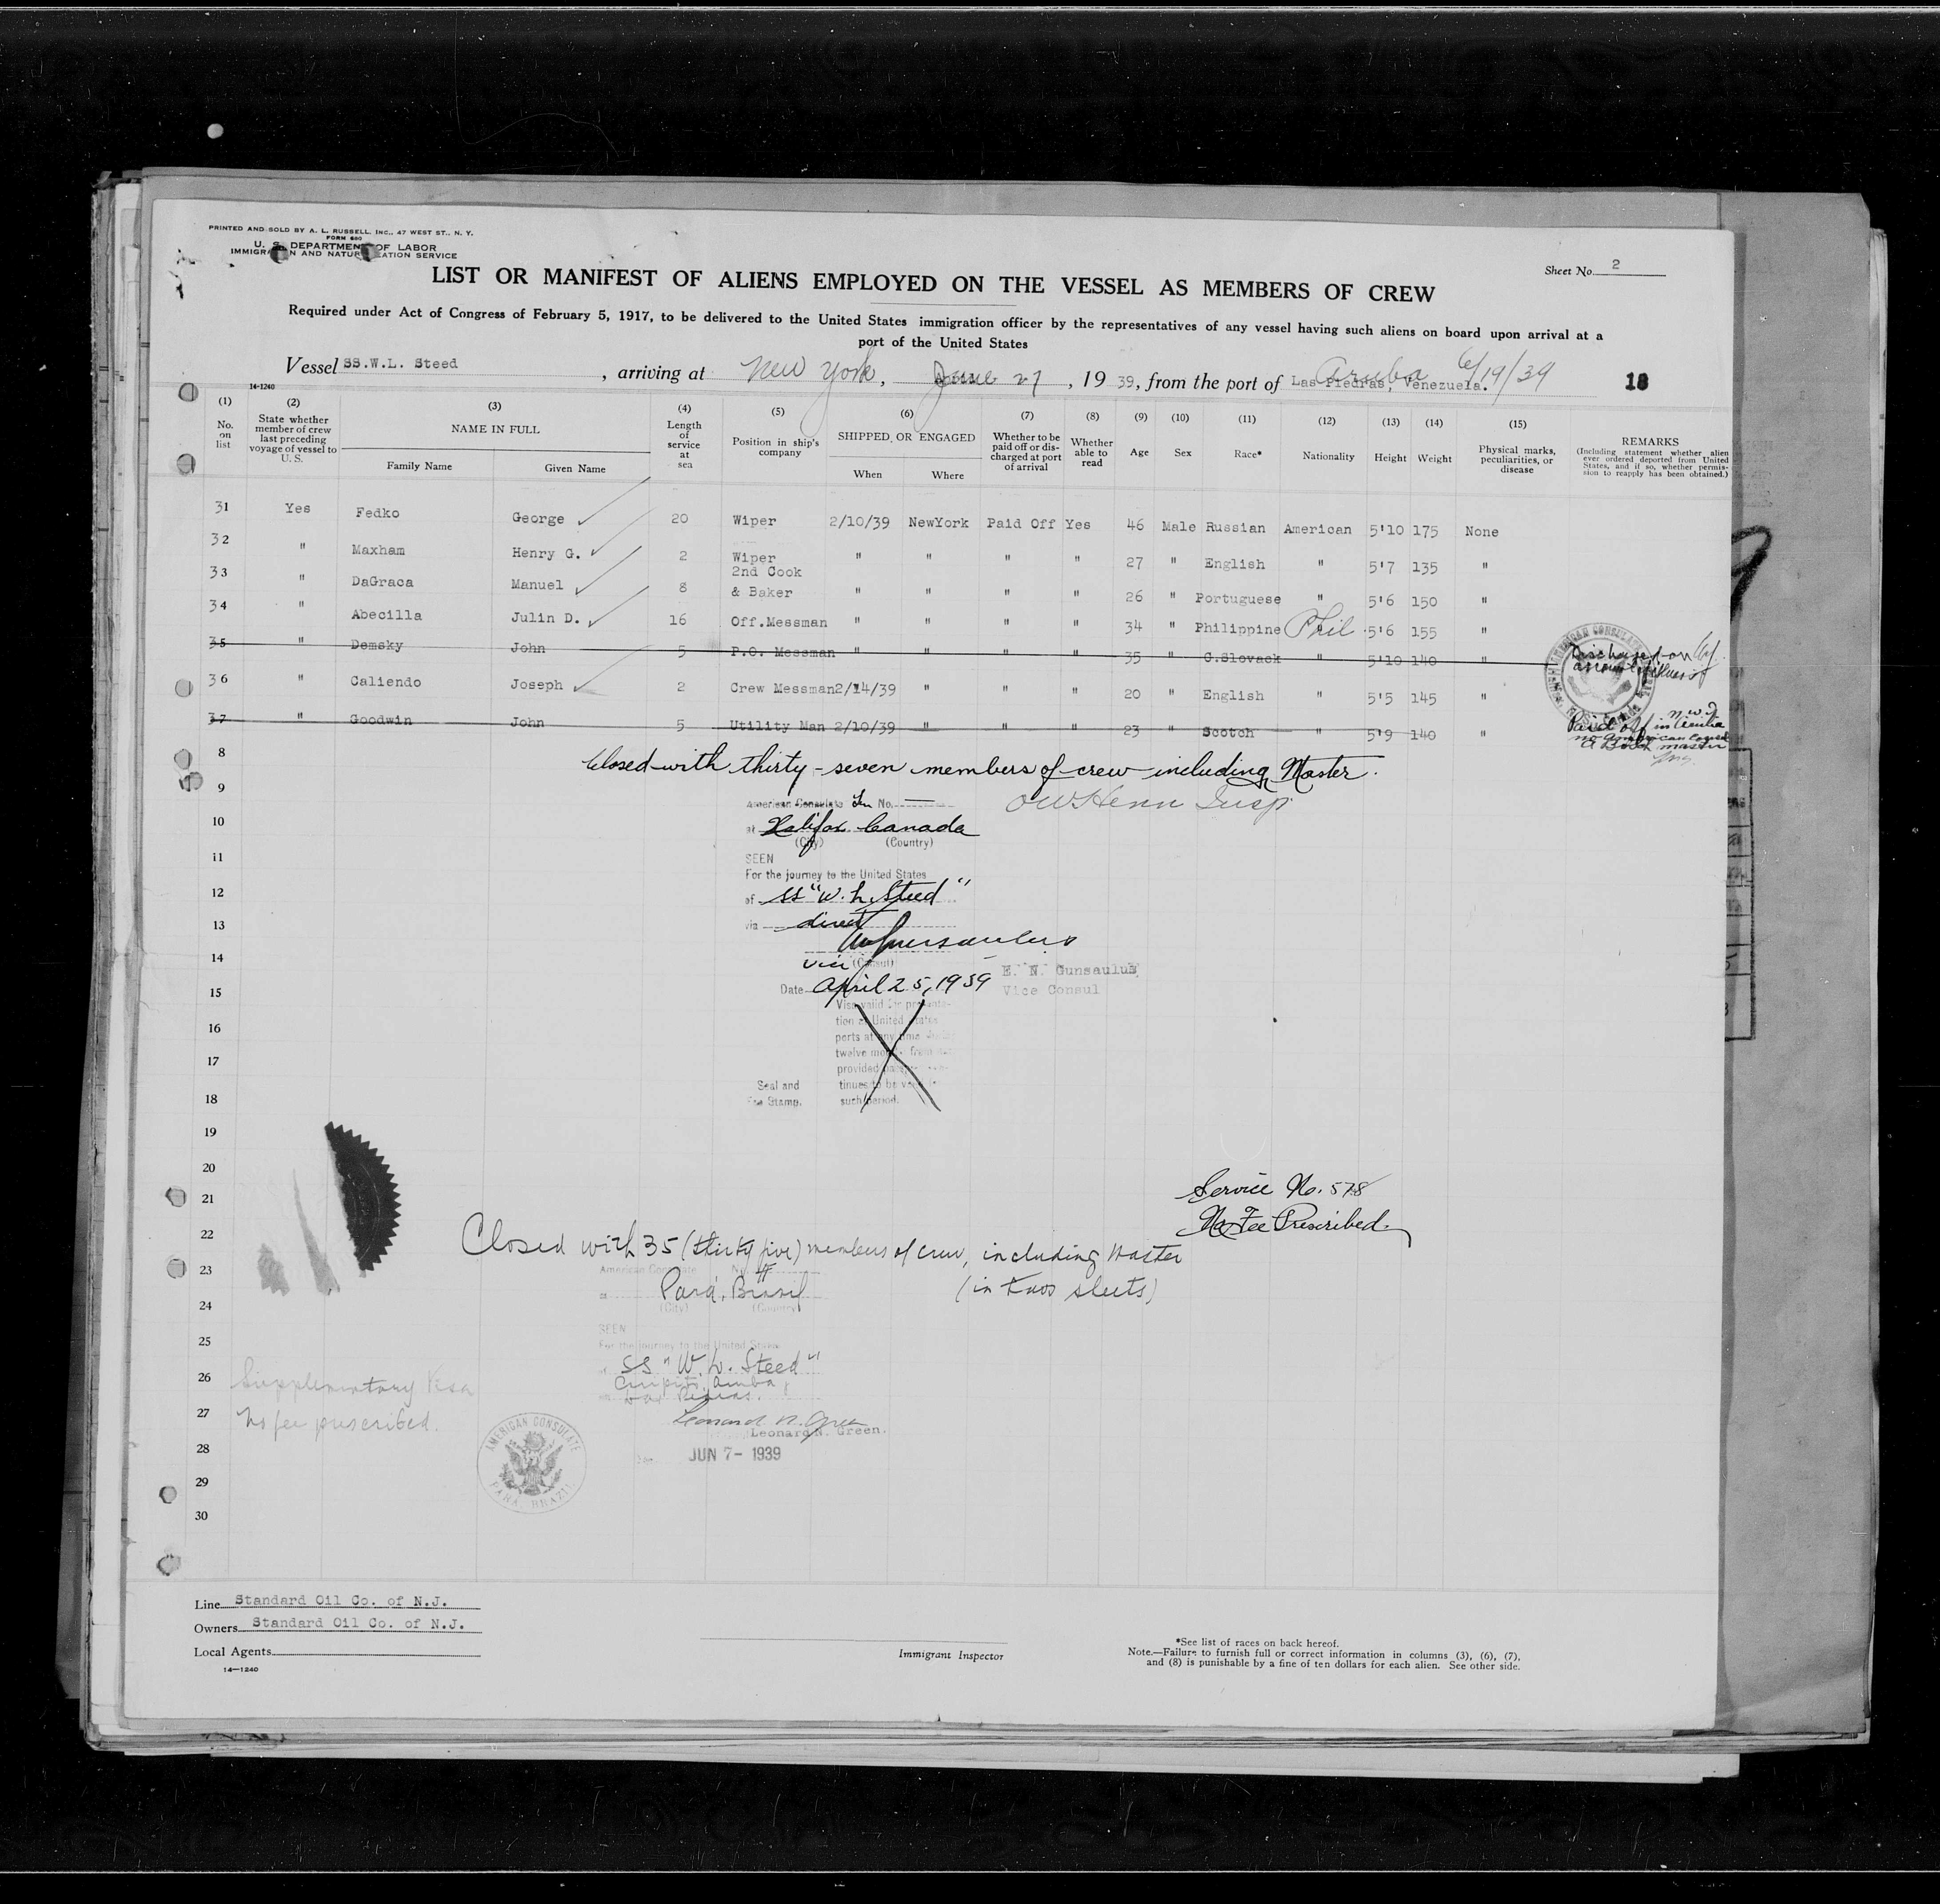 PRINTED AND SOLD BY A. L. RUSSELL, INC., 47 WEST ST., N. Y.
FORM 680
U. S. DEPARTMENT OF LABOR
IMMIGR N AND NATUR ZATION SERVICE
Sheet No. 2
LIST OR MANIFEST OF ALIENS EMPLOYED ON THE VESSEL AS MEMBERS OF CREW
Required under Act of Congress of February 5, 1917, to be delivered to the United States immigration officer by the representatives of any vessel having such aliens on board upon arrival at a
port of the United States
Vessel SS.W.L. Steed, arriving at New York, June 27, 1939, from the port of Las Piedras, Venezuela. Aruba 6/19/39
18
14-1240
(1) No. on list
(2) State whether member of crew last preceding voyage of vessel to U. S.
(3) NAME IN FULL
Family Name Given Name
(4) Length of service at sea
(5) Position in ship's company
(6) SHIPPED OR ENGAGED
When Where
(7) Whether to be paid off or discharged at port of arrival
(8) Whether able to read
(9) Age
(10) Sex
(11) Race*
(12) Nationality
(13) Height
(14) Weight
(15) Physical marks, peculiarities, or disease
REMARKS
(Including statement whether alien ever ordered deported from United States, and if so, whether permission to reapply has been obtained.)
31 Yes Fedko George 20 Wiper 2/10/39 NewYork Paid Off Yes 46 Male Russian American 5'10 175 None
32 " Maxham Henry G. 2 Wiper " " " " 27 " English " 5'7 135 "
33 " DaGraca Manuel 8 2nd Cook & Baker " " " " 26 " Portuguese " 5'6 150 "
34 " Abecilla Julin D. 16 Off.Messman " " " " 34 " Philippine Phil. 5'6 155 "
35 " Demsky John 5 P.O. Messman " " " " 35 " C.Slovack " 5'10 140 " Discharged on account of illness
36 " Caliendo Joseph 2 Crew Messman 2/14/39 " " " 20 " English " 5'5 145 "
37 " Goodwin John 5 Utility Man 2/10/39 " " " 23 " Scotch " 5'9 140 " Paid off in
no American Consul
master
8
Closed with thirty-seven members of crew including Master.
9
American Consulate No.
OW Henn Insp
10
at Halifax Canada
(City) (Country)
11
SEEN
For the journey to the United States
12
of SS "W. L. Steed"
13
via direct
14
Vice (Consul)
E. N. Gunsaulus
Vice Consul
15
Date April 25, 1939
16
Visa valid for presenta-
tion at United States
ports at any time
17
twelve months from
provided
18
Seal and
Fee Stamp.
tinues to be
such period.
19
20
21
Service No. 578
No Fee Prescribed.
22
Closed with 35 (thirty five) members of crew, including Master
(in two sheets)
23
American Consulate No.
Pará, Brasil
24
(City) (Country)
25
SEEN
For the journey to the United States
26
of SS "W. L. Steed"
Supplementary Visa
No fee prescribed.
27
Leonard N. Green.
28
JUN 7- 1939
AMERICAN CONSULATE
PARA, BRAZIL
29
30
Line Standard Oil Co. of N.J.
Owners Standard Oil Co. of N.J.
Local Agents
14—1240
Immigrant Inspector
*See list of races on back hereof.
Note.—Failure to furnish full or correct information in columns (3), (6), (7),
and (8) is punishable by a fine of ten dollars for each alien. See other side.